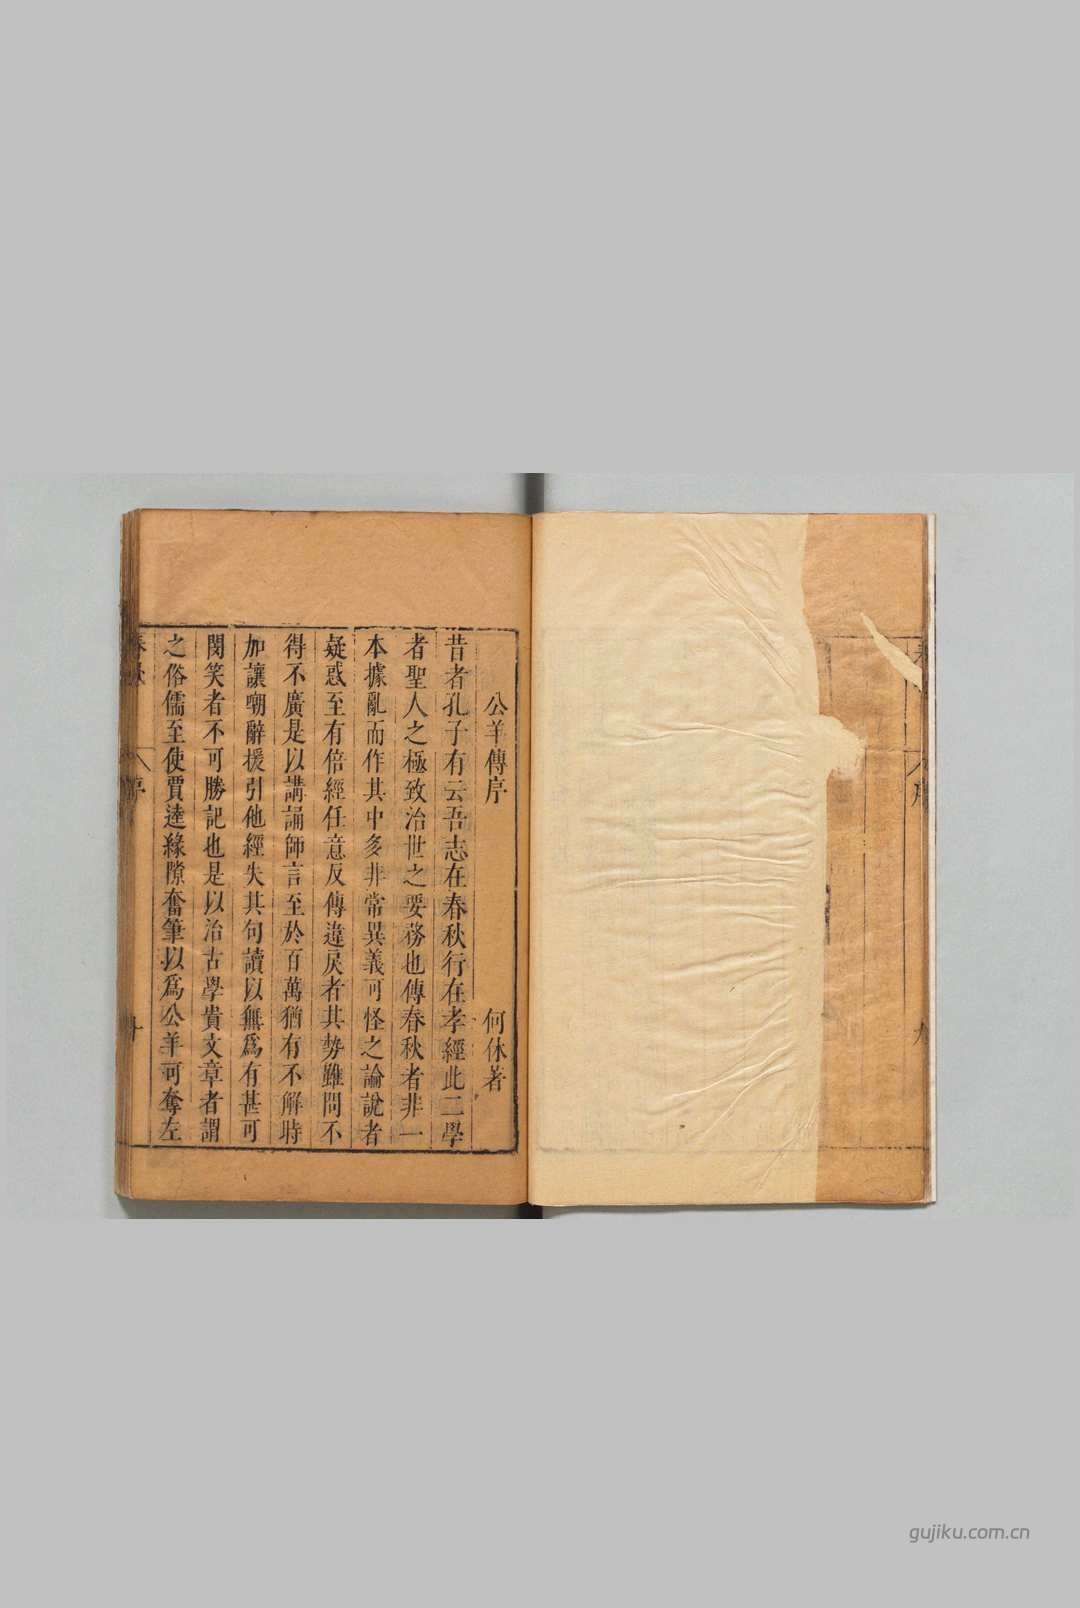 公羊傳序
何休著
昔者孔子有云吾志在春秋行在孝經此二學
者聖人之極致治世之要務也傳春秋者非一
本據亂而作其中多非常異義可怪之論說者
疑惑至有倍經任意反傳違戾者其勢雖問不
得不廣是以講誦師言至於百萬猶有不解時
加讓嘲辭援引他經失其句讀以無為有甚可
閔笑者不可勝記也是以治古學貴文章者謂
之俗儒至使賈逵緣隙奮筆以爲公羊可奪左
序
gujiku.com.cn